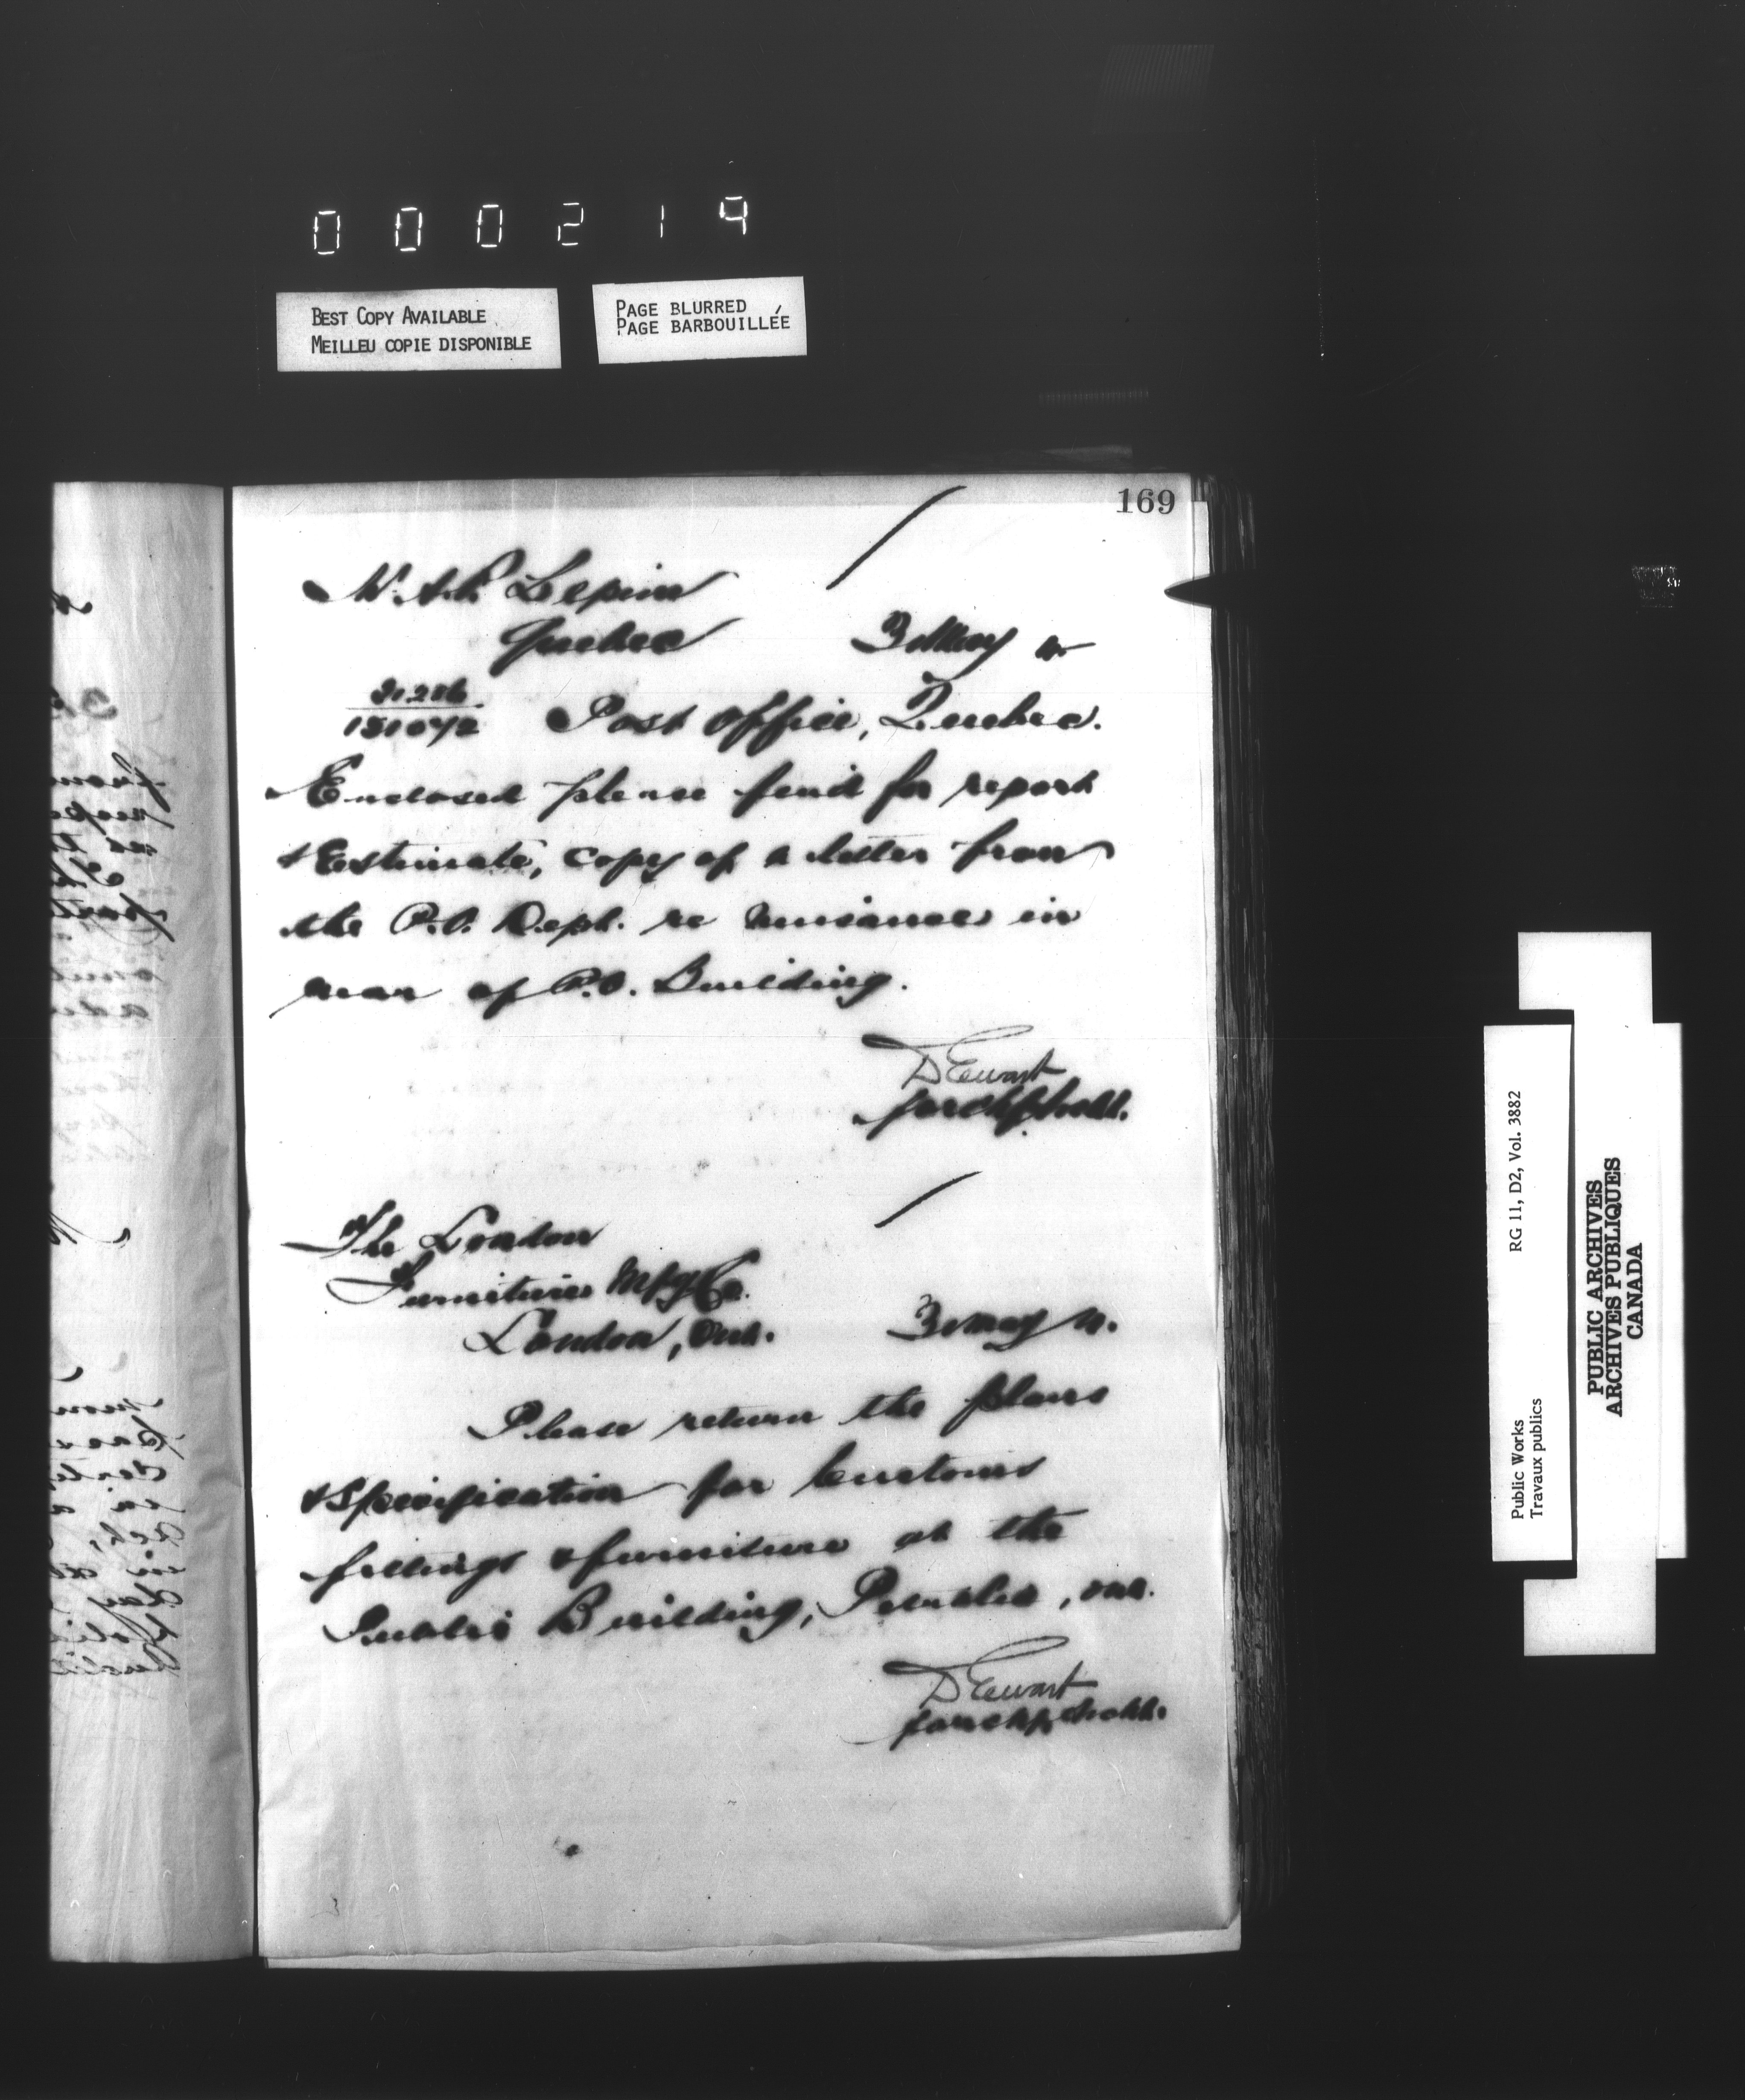 000219
BEST COPY AVAILABLE
MEILLEU COPIE DISPONIBLE
PAGE BLURRED
PAGE BARBOUILLÉE
169
Lepine
Quebec 3 May
Post Office, Quebec.
Enclosed please find for report
& Estimate, copy of a letter from
the P.O. Dept. re nuisances in
rear of P.O. Building.
D Ewart
for Ch. Archt.
The London
Furniture Mfg Co.
London, Ont. 3 May
Please return the plans
& Specification for Customs
fittings & furniture at the
Public Building, Ont.
D Ewart
for Ch. Archt.
Public Works
Travaux publics
RG 11, D2, Vol. 3882
PUBLIC ARCHIVES
ARCHIVES PUBLIQUES
CANADA